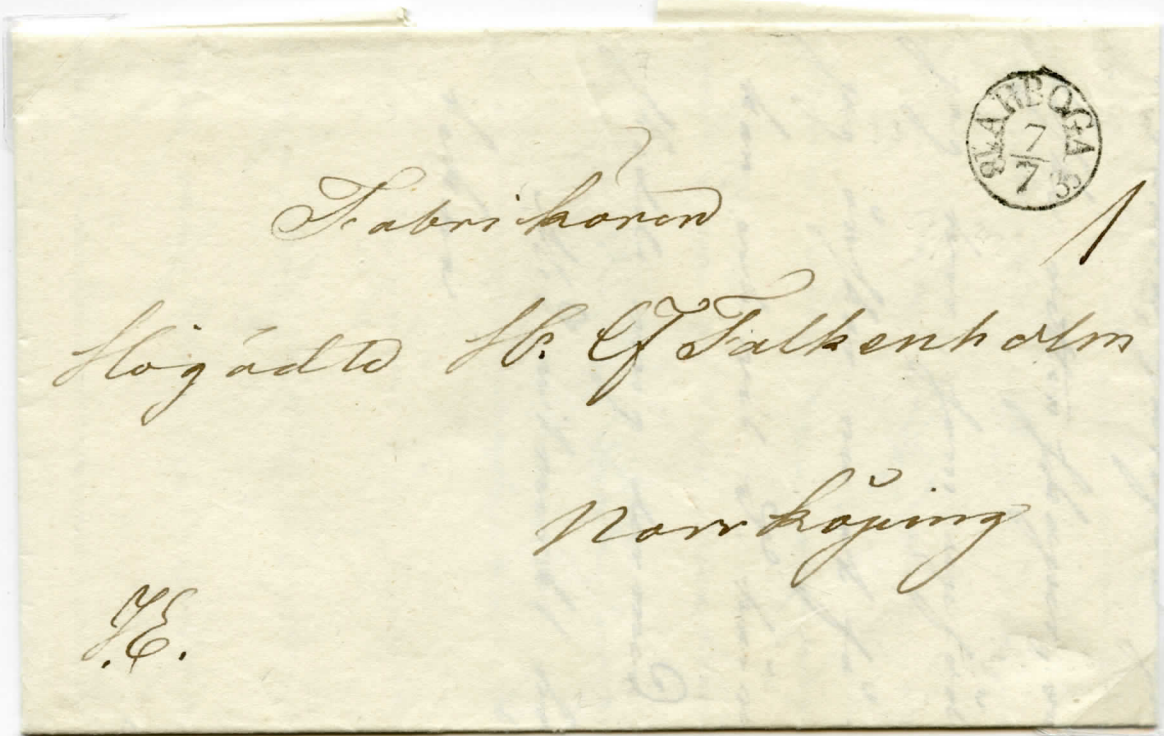 ARBOGA
7
7
Fabrikören
1
Högädle H. C J Falkenholm
Norrköping
J.E.